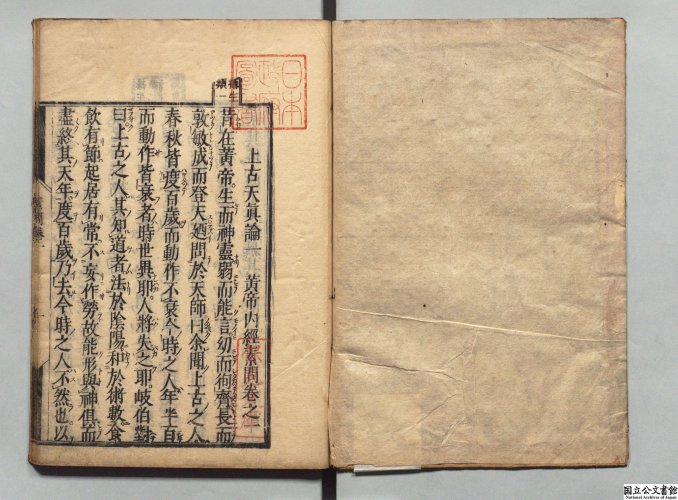 上古天眞論一　黃帝内經素問卷之一
昔在黃帝生而神靈弱而能言幼而徇齊長而
敦敏成而登天廼問於天師曰余聞上古之人
春秋皆度百歲而動作不衰今時之人年半百
而動作皆衰者時世異耶人將失之耶岐伯對
曰上古之人其知道者法於陰陽和於術數食
飲有節起居有常不妄作勞故能形與神俱而
盡終其天年度百歲乃去今時之人不然也以
日本
國立公文書館
National Archives of Japan